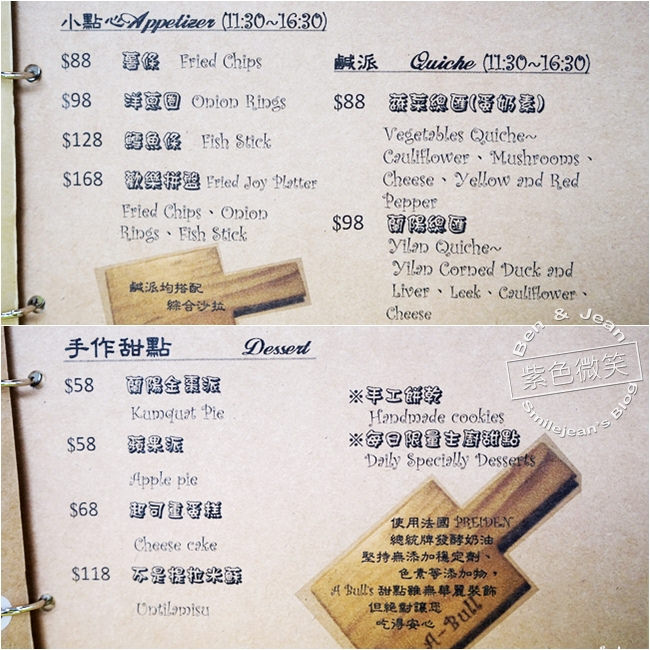 小點心Appetizer (11:30~16:30)
$88 薯條 Fried Chips
$98 洋蔥圈 Onion Rings
$128 鱈魚條 Fish Stick
$168 歡樂拼盤 Fried Joy Platter
Fried Chips、Onion
Rings、Fish Stick
鹹派均搭配
綜合沙拉
鹹派 Quiche (11:30~16:30)
$88 蔬菜總匯(蛋奶素)
Vegetables Quiche~
Cauliflower、Mushrooms、
Cheese、Yellow and Red
Pepper
$98 蘭陽總匯
Yilan Quiche~
Yilan Corned Duck and
Liver、Leek、Cauliflower、
Cheese
Ben & Jean
紫色微笑
Smilejean's Blog
手作甜點 Dessert
$58 蘭陽金棗派
Kumquat Pie
$58 蘋果派
Apple pie
$68 起司重蛋糕
Cheese cake
$118 不是提拉米蘇
Untilamisu
※手工餅乾
Handmade cookies
※每日限量主廚甜點
Daily Specially Desserts
使用法國 PREIDEN
總統牌發酵奶油
堅持無添加穩定劑、
色素等添加物，
A Bull's 甜點雖無華麗裝飾
但絕對讓您
吃得安心
A-Bull